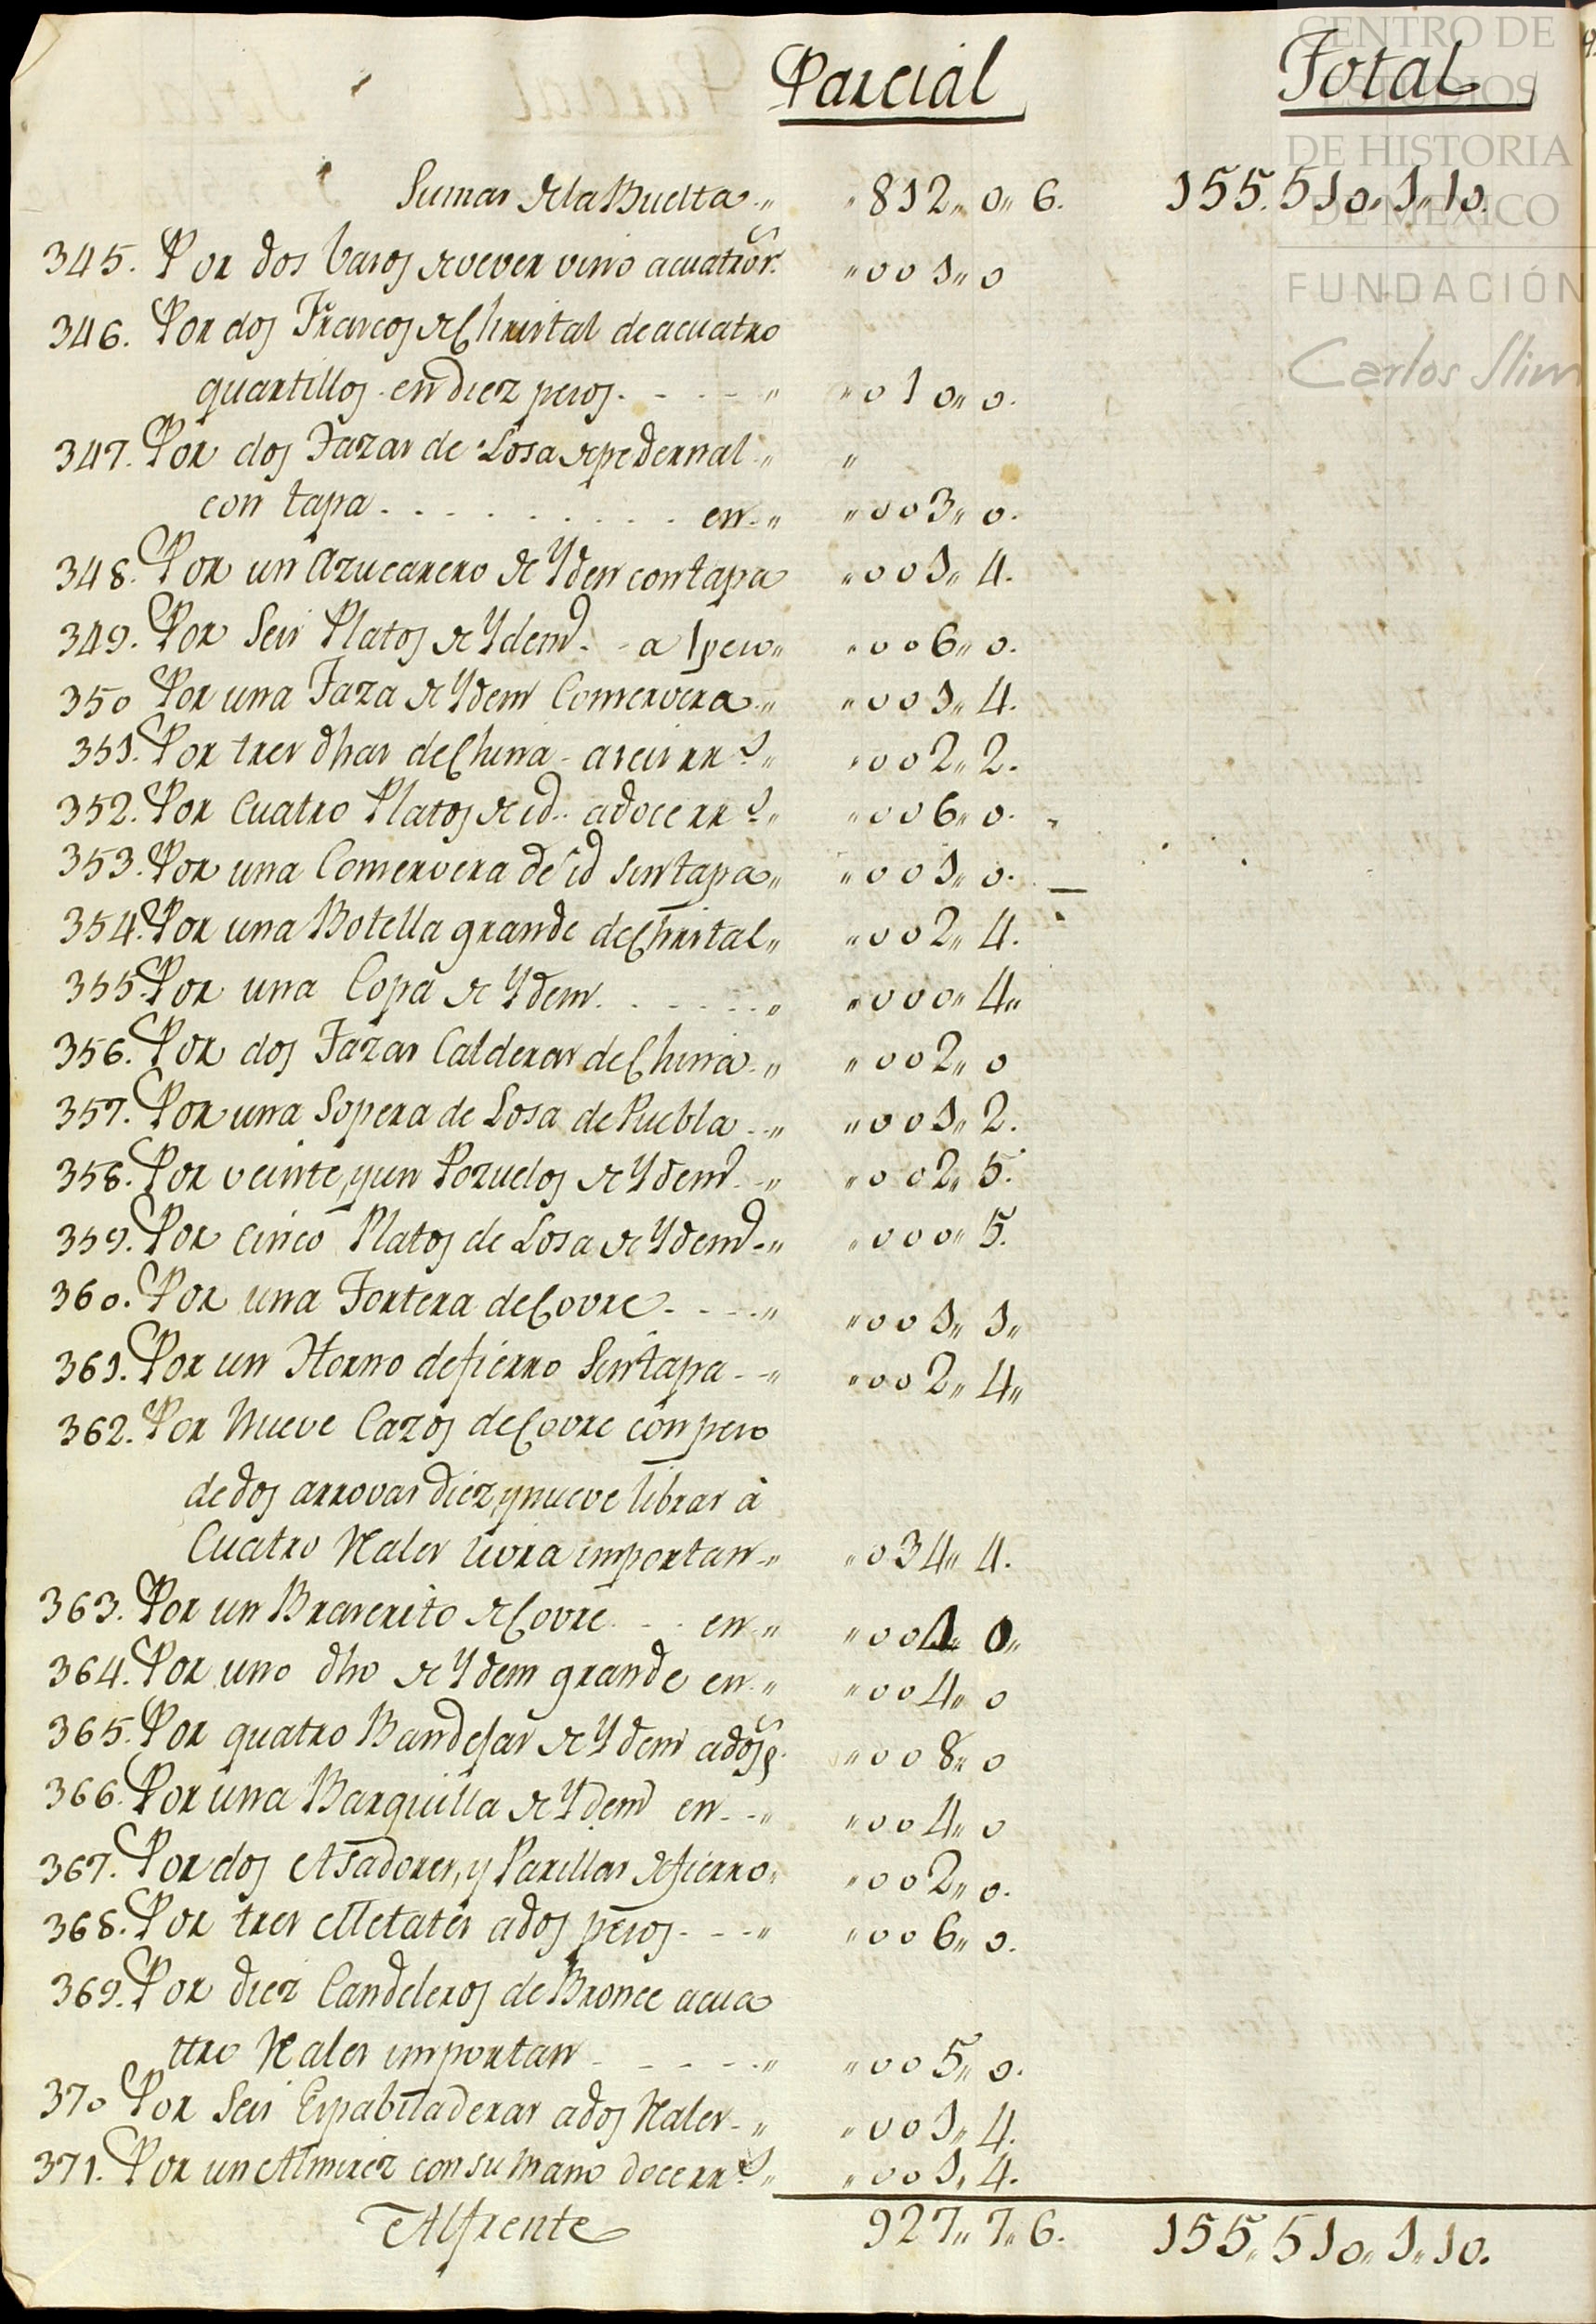 Parcial Total
Sumas de la Buelta " 812" 0" 6. 155.510" 1" 10.
345. Por dos basos de vever vino a cuatro rs. " 001" 0
346. Por dos Frascos de Christal de a cuatro
quartillos en diez pesos. " 010" 0.
347. Por dos Tazas de Losa de pedernal " "
con tapa . . . . . . . . . en " " 003" 0.
348. Por un Azucarero de Ydem con tapa " 001" 4.
349. Por Seis Platos de Ydem. a 1 peso " " 006" 0.
350 Por una Taza de Ydem Conservera " " 001" 4.
351. Por tres dhas de China a seis rrs. " " 002" 2.
352. Por Cuatro Platos de id. a doce rrs. " " 006" 0.
353. Por una Conservera de id sin tapa " " 001" 0.
354. Por una Botella grande de Christal " " 002" 4.
355. Por una Copa de Ydem . . . . . " " 000" 4"
356. Por dos Tazas Calderas de China " " 002" 0
357. Por una Sopera de Losa de Puebla " " 001" 2.
358. Por veinte, y un Pozuelos de Ydem " " 002" 5.
359. Por Cinco Platos de Losa de Ydem " " 000" 5.
360. Por una Tortera de Covre . . . " " 001" 1"
361. Por un Horno de fierro Sin tapa " " 002" 4"
362. Por Nueve Cazos de Covre con peso
de dos arrovas diez, y nueve libras á
Cuatro Rales livra importan " " 034" 4.
363. Por un Braserito de Covre . . en " " 001" 0"
364. Por uno dho de Ydem grande en " " 004" 0
365. Por quatro Bandejas de Ydem a dos ps. " 008" 0
366. Por una Barquilla de Ydem en " " 004" 0
367. Por dos Asadores, y Parillas de fierro " " 002" 0.
368. Por tres Metates a dos pesos . . . " " 006" 0.
369. Por diez Candeleros de Bronce a cua
ttro Rales importan . . . . . " " 005" 0.
370 Por Seis Espabiladeras a dos Rales " " 001" 4.
371. Por un Almirez con su mano doce rrs. " " 001" 4.
Al frente 927" 7" 6. 155.510" 1" 10.
CENTRO DE
ESTUDIOS
DE HISTORIA
DE MÉXICO
FUNDACIÓN
Carlos Slim